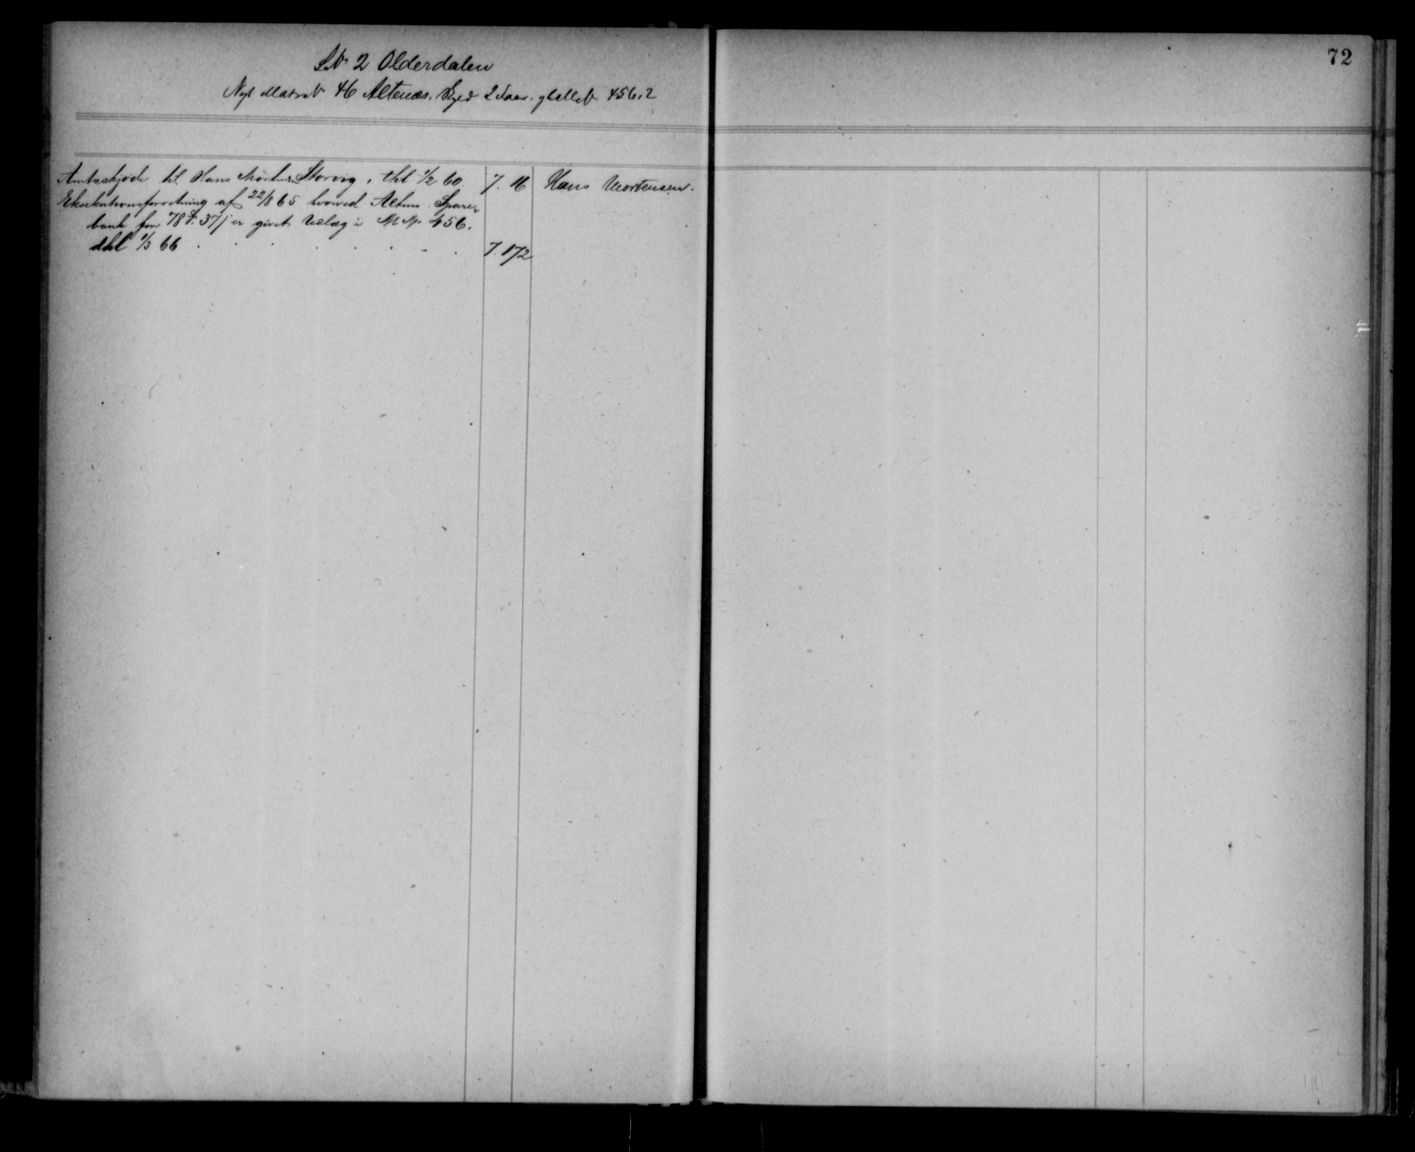 LN 2 Olderdalen
Nyt Matr N 46 Altenæs. Skyld 2 Daler. gl M N 456.2
72
Amtsskjøde til Hans Mortens. Storvig, thl 1/2 60. 7. 16 Hans Mortensen.
Eksekutionsforretning af 22/8 65 hvorved Altens Spare-
bank for 78 37 er givet Udlæg i M N 456.
thl 1/3 66 . . . . . . 7. 172